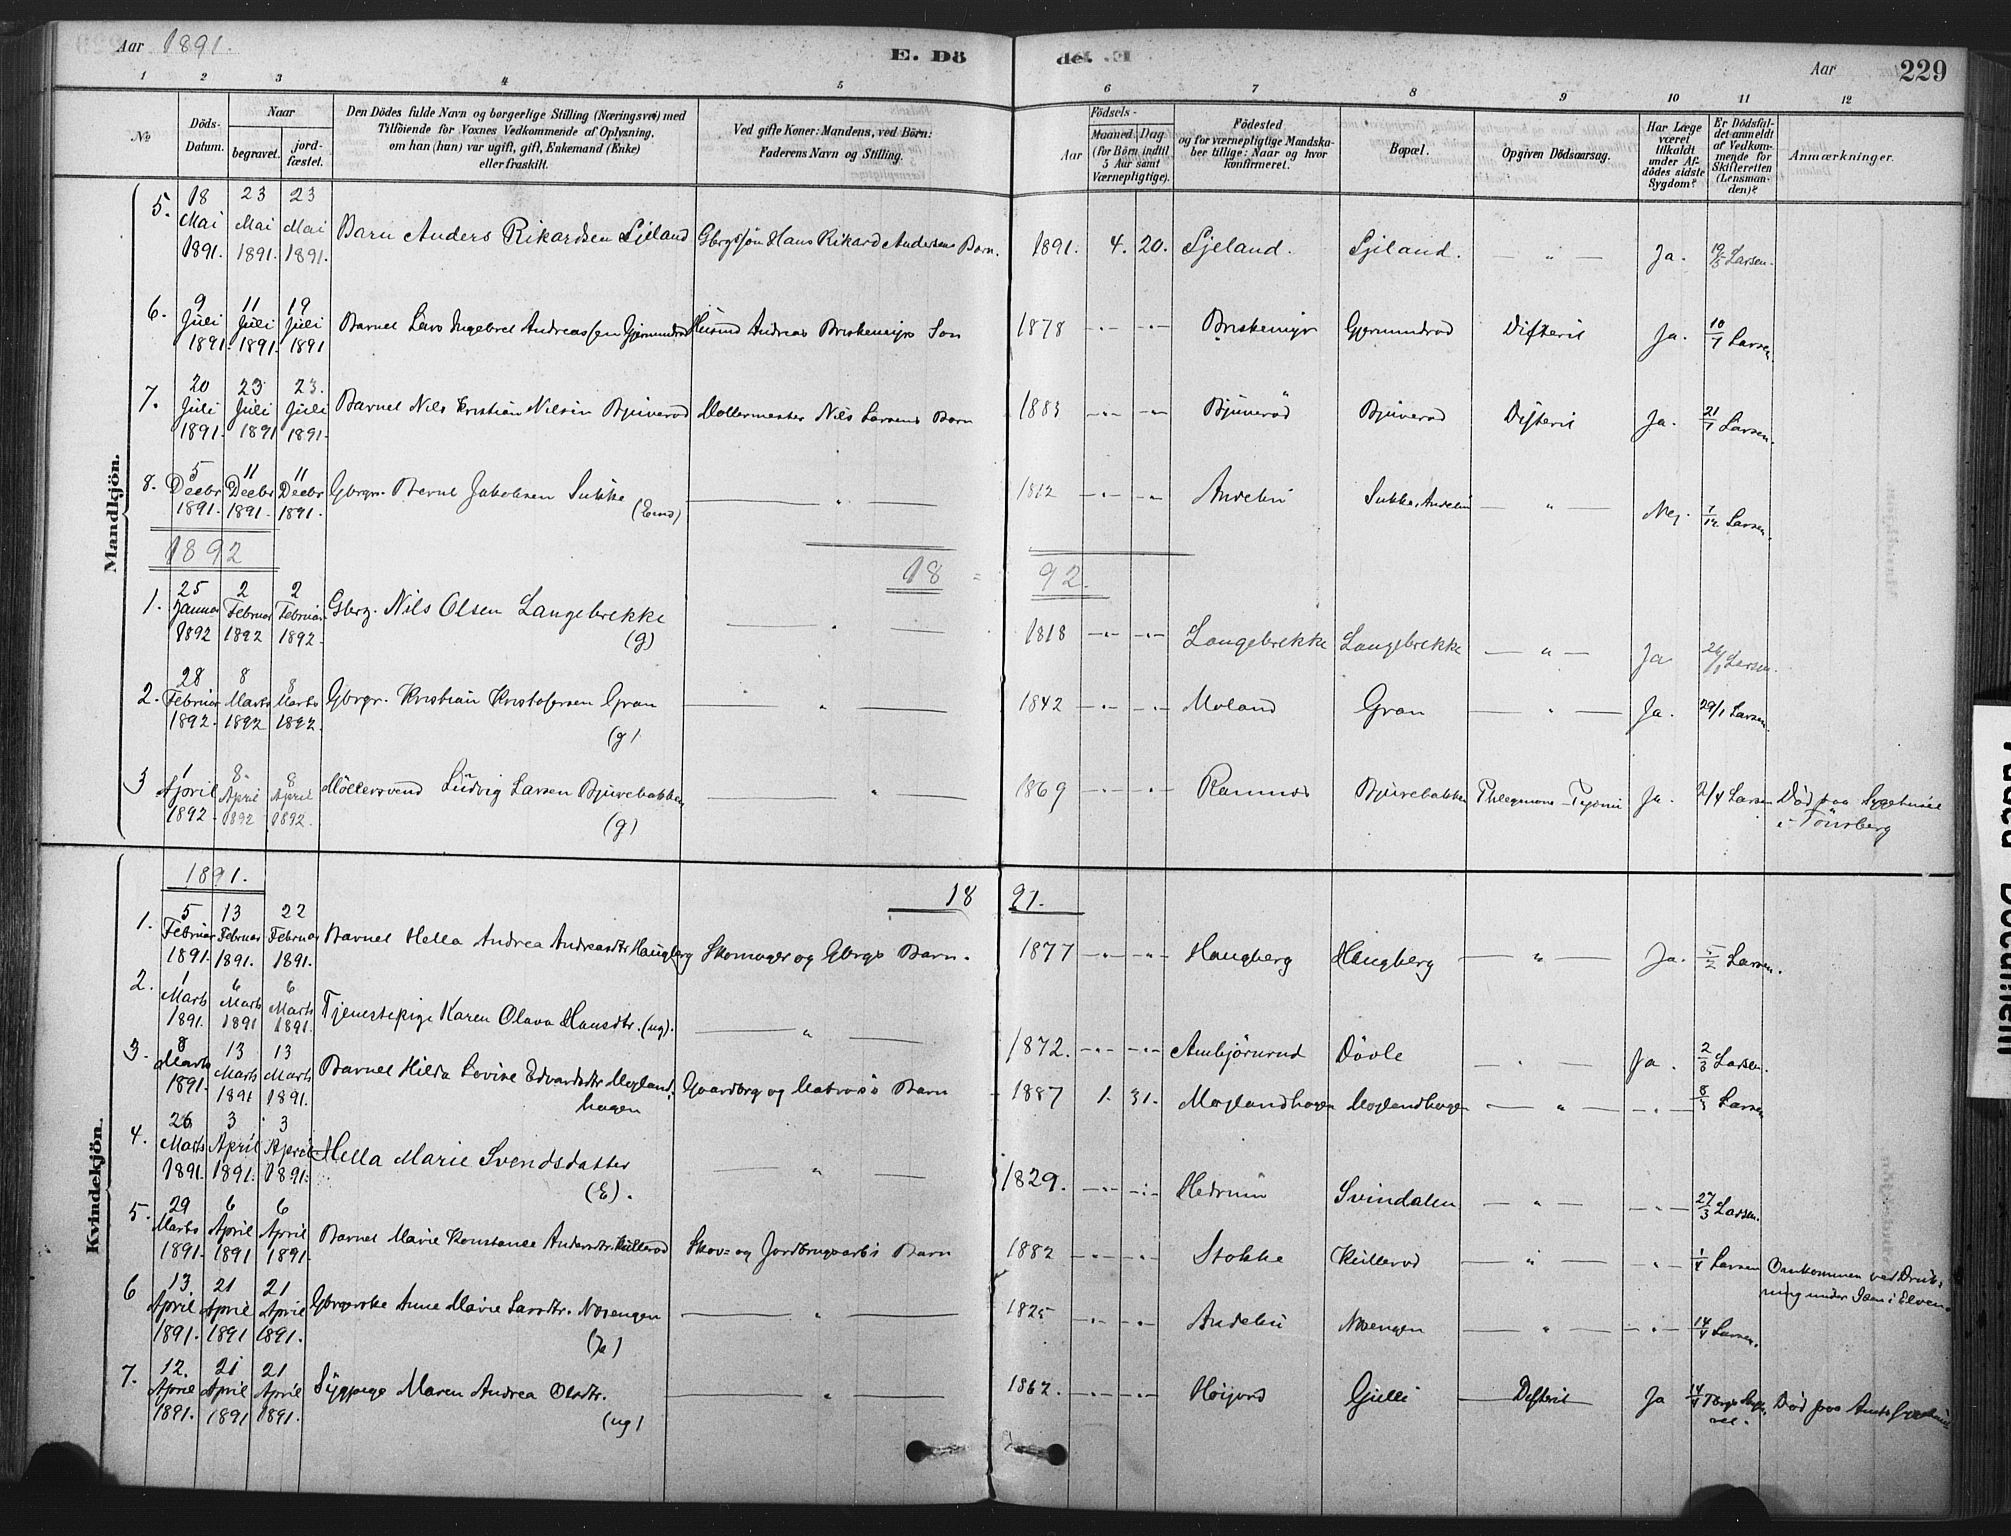 Aar 1891.
E. Dö
de.
Aar
229
1 2 3 4 5 6 7 8 9 10 11 12
№
Döds-
Datum.
Naar
begravet.
jord-
fæstet.
Den Dödes fulde Navn og borgerlige Stilling (Næringsvei) med
Tilföiende for Voxnes Vedkommende af Oplysning,
om han (hun) var ugift, gift, Enkemand (Enke)
eller fraskilt.
Ved gifte Koner: Mandens, ved Börn:
Faderens Navn og Stilling.
Födsels-
Aar
Maaned.
Dag
(for Börn indtil
5 Aar samt
Værnepligtige).
Födested
og for værnepligtige Mandska-
ber tillige: Naar og hvor
konfirmeret.
Bopæl.
Opgiven Dödsaarsag.
Har Læge
været
tilkaldt
under Af-
dödes sidste
Sygdom?
Er Dödsfal-
det anmeldt
af Vedkom-
mende for
Skifteretten
(Lensman-
den)?
Anmærkninger.
Mandkjön.
5. 18 Mai 1891. 23 Mai 1891. 23 Mai 1891. Barn Anders Rikardsen Sjeland Gbrgs søn Hans Rikard Andersens Barn. 1891. 4. 20. Sjeland. Sjeland. — " — Ja. 19/5 Larsen.
6. 9 Juli 1891. 11 Juli 1891. 19 Juli 1891 Barnet Lars Ingebret Andreassen Gjermundrød Husmd Andreas Briskemyrs Søn 1878 Briskemyr Gjermundrød Difterit Ja. 10/7 Larsen.
7. 20 Juli 1891. 23 Juli 1891 23. Juli 1891. Barnet Nils Kristian Nilsen Bjuverød Møllermester Nils Larsens Barn 1883 Bjuverød Bjuverød Difterit Ja. 21/7 Larsen.
8. 5 Decbr 1891. 11 Decbr 1891. 11 Decbr 1891. Gbrgr. Bernt Jakobsen Sukke
(Emd) — " — 1812 Andebu Sukke, Andebu — " — Nej. Larsen.
1892
18 92.
1. 25 Januar 1892 2 Februar 1892 2 Februar 1892. Gbrg. Nils Olsen Langebrekke
(g) — " — 1818 Langebrekke Langebrekke — " — Ja 26/1 Larsen.
2. 28 Februar 1892. 8 Marts 1892 8 Marts 1892. Gbrgr. Kristian Kristofersen Gran
(g) — " — 1842 Moland Gran — " — Ja. 29/1 Larsen.
3 1 April 1892. 8. April 1892 8 April 1892. Möllersvend Ludvig Larsen Bjurebakken
(g) — " — 1869 Ramnæs Bjurebakken Phlegmone - Pyæmi Ja. 2/4 Larsen Död paa Sygehuset
i Tönsberg
Kvindekjön.
1891.
18 91.
1. 5 Februar 1891. 13 Februar 1891. 22 Februar 1891. Barnet Hella Andrea Andreasdtr Haugberg Skomager og Gbrgs Barn. 1877 Haugberg Haugberg — " — Ja. 5/2 Larsen.
2. 1 Marts 1891. 6 Marts 1891 6 Marts 1891. Tjenestepige Karen Olava Hansdtr. (ug). — " — 1872. Ambjørnrud Døvle — " — Ja. 2/3 Larsen.
3. 8 Marts 1891. 13 Marts 1891 13 Marts 1891. Barnet Hilda Lovise Edvardsdtr Møyland-
hagen Gaardbrg og Matros's Barn 1887 1. 31. Møylandhagen Møylandhagen — " — 8/3 Larsen
4. 26 Marts 1891. 3 April 1891. 3 April 1891. Hella Marie Svendsdatter
(E). — " — 1829. Hedrum Svindalen — " — 27/3 Larsen.
5. 29 Marts 1891. 6 April 1891 6 April 1891. Barnet Marie Konstance Andersdtr. Kullerød Skov- og Jordbrugsarb's Barn 1882 Stokke Kullerød — " — 1/4 Larsen Omkommen ved Druk-
ning under Isen i Elven.
6 13. April 1891. 21 April 1891 21 April 1891. Anne Marie Larsdtr. Nøsengen — " — 1825 Andebu Nøsengen — " — 14/4 Larsen.
7. 12. April 1891. 21 April 1891 21 April 1891. Sypige Maren Andrea Olsdtr.
(ug) — " — 1862. Høijord Gulli Difterit Ja 14/4 Död paa